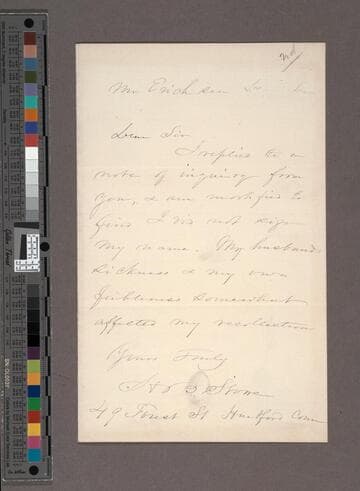 Mr Erickson
Dear Sir
I replied to a
note of inquiry from
you, & am mortified to
find I did not sign
my name. My husbands
sickness & my own
feebleness somewhat
affected my recollection
Yours Truly
H B Stowe
49 Forest St Hartford Conn